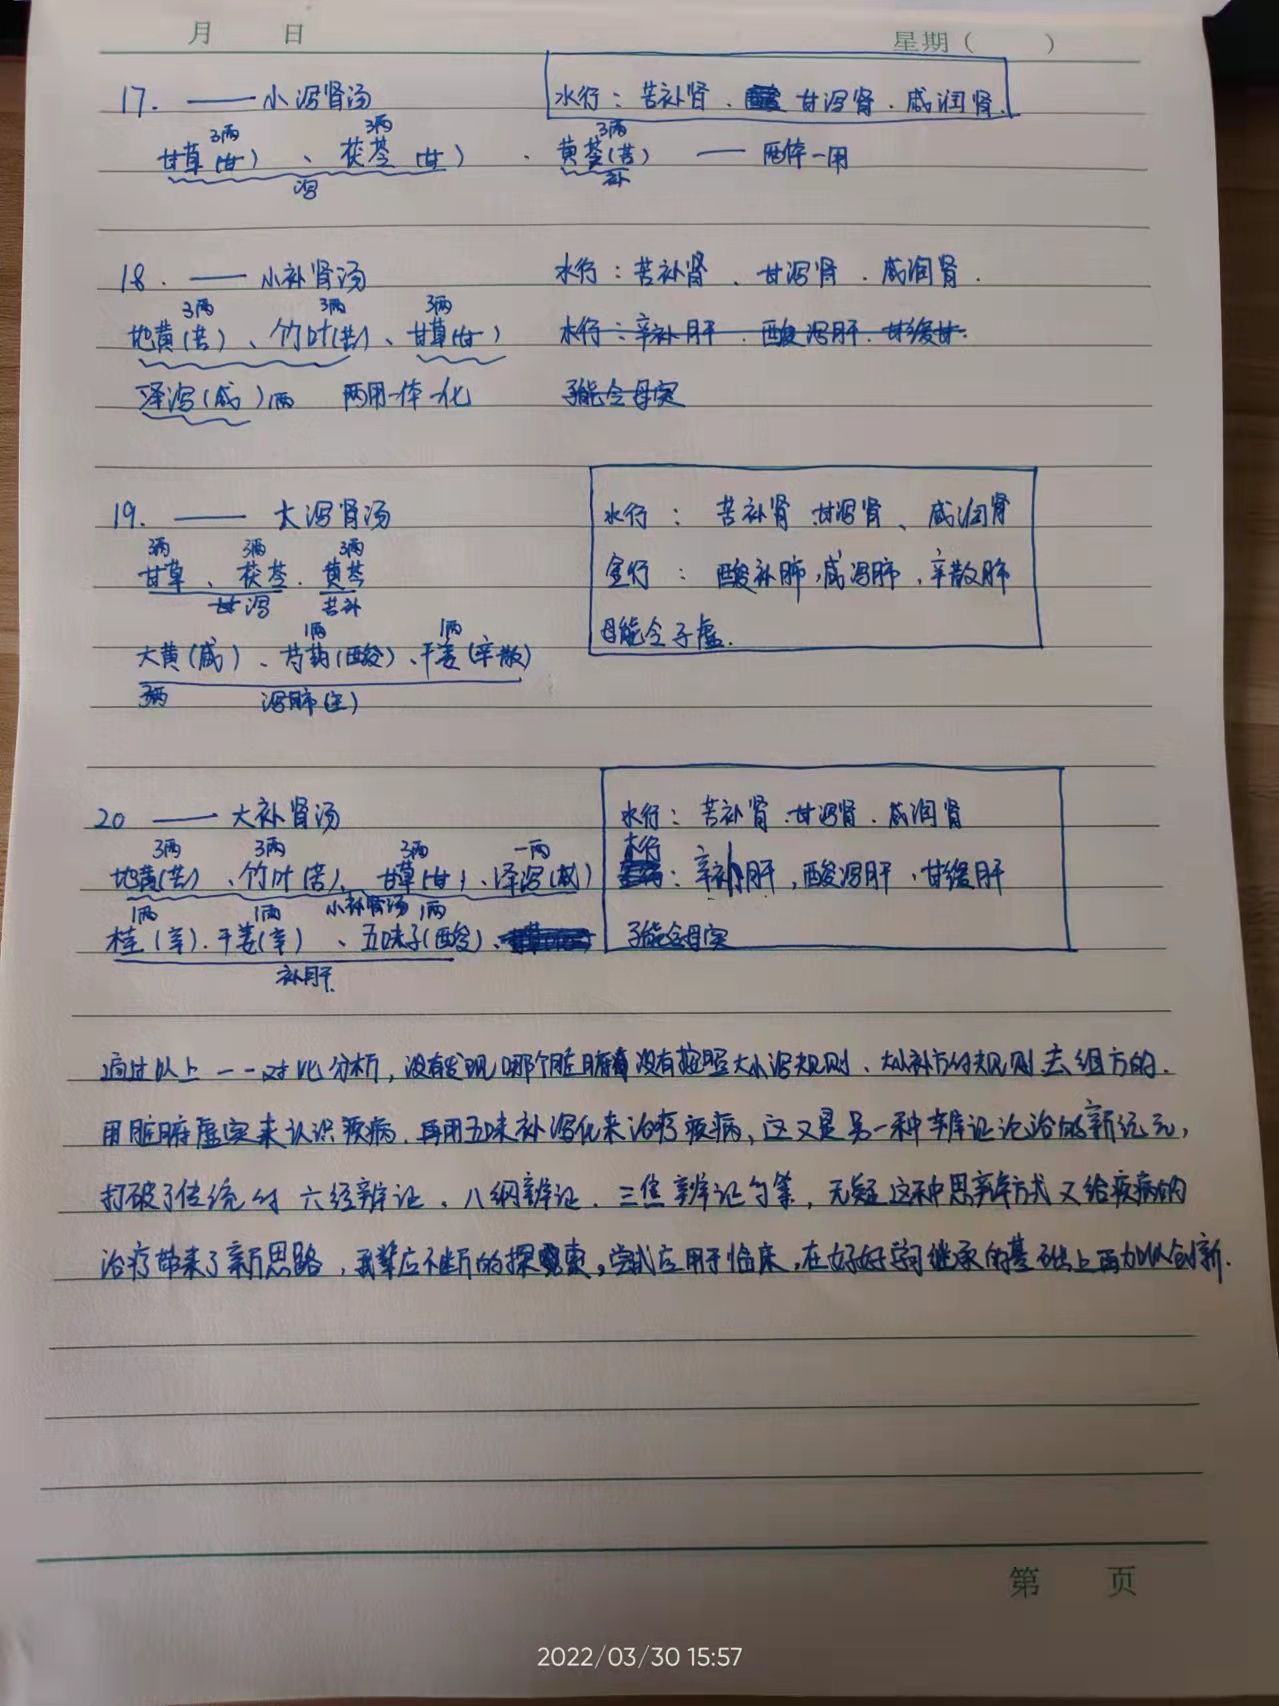 月 日 星期( )
17. —— 小泻肾汤 水行：苦补肾、甘泻肾、咸润肾.
3两 3两 3两
甘草(甘)、茯苓(甘)、黄芩(苦) —— 两体一用
泻 补
18. —— 小补肾汤 水行：苦补肾、甘泻肾、咸润肾.
3两 3两 3两
地黄(苦)、竹叶(苦)、甘草(甘) 水行：辛补肝、酸泻肝、甘缓甘.
泽泻(咸)1两 两用一体一化 子能令母实
19. —— 大泻肾汤 水行：苦补肾 甘泻肾、咸润肾
3两 3两 3两
甘草、茯苓、黄芩 金行：酸补肺,咸泻肺,辛散肺
甘泻 苦补
母能令子虚.
1两 1两
大黄(咸)、芍药(酸)、干姜(辛散)
3两 泻肺(金)
20 —— 大补肾汤 水行：苦补肾、甘泻肾、咸润肾
3两 3两 3两 一两 木行
地黄(苦)、竹叶(苦)、甘草(甘)、泽泻(咸) ：辛补肝,酸泻肝,甘缓肝
1两 1两 小补肾汤 1两
桂(辛)、干姜(辛)、五味子(酸)、 子能令母实
补肝.
通过以上一一对比分析,没有发现哪个脏腑没有按照大小泻规则、大小补方的规则去组方的.
用脏腑虚实来认识疾病,再用五味补泻化来治疗疾病,这又是另一种辨证论治的新纪元,
打破了传统的六经辨证、八纲辨证、三焦辨证等,无疑这种思辨方式又给疾病的
治疗带来了新思路,我辈应不断的探索,尝试应用于临床,在好好学习继承的基础上再加以创新.
第 页
2022/03/30 15:57